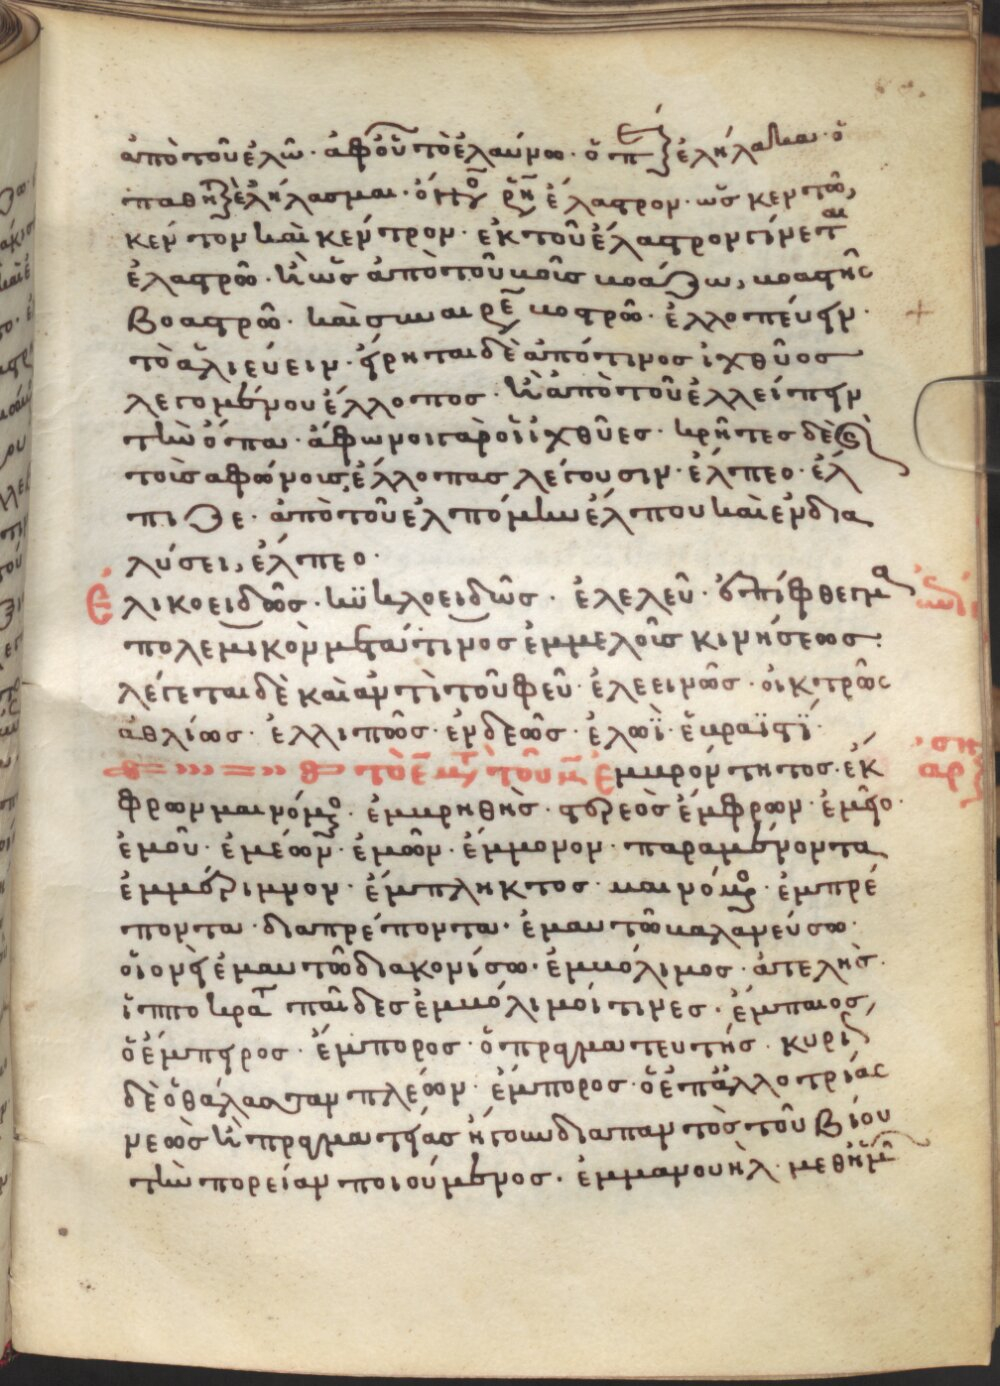 ἀπὸ τοῦ ἐλῶ · ἀφ οὗ τὸ ἐλαύνω · ὁ π ἐλήλακα · ὁ
παθη ἐλήλασμαι · ἐλατρον · ὡς κεντῶ,
κέντον καὶ κέντρον · ἐκ τοῦ ἔλατρον γίνεται
ἐλατρῶ · κ ὡς ἀπὸ τοῦ
βοατρῶ · καὶ · ἐλλοπεύειν ·
τὸ ἁλιεύειν · εἴρηται δὲ ἀπό τινος ἰχθύος
λεγομένου ἔλλοπος · κ ἀπὸ τοῦ ἐλλείπειν
τὴν ὄπα · ἄφωνοι γὰρ οἱ ἰχθύες · κρῆτες δὲ
τοῖς ἀφώνοις ἔλλοπας λέγουσιν · ἔλπεο · ἔλ
πιζε · ἀπὸ τοῦ ἐλπόμην ἔλπου καὶ ἐν δια
λύσει, ἔλπεο ·
Ἑλικοειδῶς · κυκλοειδῶς · ἐλελεῦ · ἐπίφθεγμα
πολεμικὸν μετά τινος ἐμμελοῦς κινήσεως :
λέγεται δὲ καὶ ἀντὶ τοῦ φεῦ · ἐλεεινῶς · οἰκτρῶς
ἀθλίως · ἐλλιπῶς · ἐνδεῶς · ἐλωῒ · ἑβραϊστὶ ·
τὸ ε μετ τοῦ μ Ἐμβρόντητος · ἔκ
φρων μαινόμενος · ἐμβρηθὴς · στερεὸς ἔμφρων · ἐμεῖο ·
ἐμοῦ · ἐμέων · ἐμῶν · ἔμμονον · παραμένοντα
ἐμμέριμνον · ἔμπληκτος · μαινόμενος · ἐμπρέ
ποντα · διαπρέποντα · ἐμαυτῶ ταλαντεύσω ·
οἱονεὶ ἐμαυτῶ διακονίσω · ἐμβόλιμος · ἀτελὴς ·
ἱπποκρατ παῖδες ἐμβόλιμοί τινες · ἔμπαιος,
ὁ ἔμπειρος · ἔμπορος · ὁ πραγματευτής · κυρι
δὲ ὁ θάλασσαν πλέων · ἔμπορος · ὁ ἐπ ἀλλοτρίας
νεὼς κ πραγματείας ἤγουν διαπαντὸς τοῦ βίου
τὴν πορείαν ποιούμενος · ἐμμανουὴλ · μεθ ἡμῶν